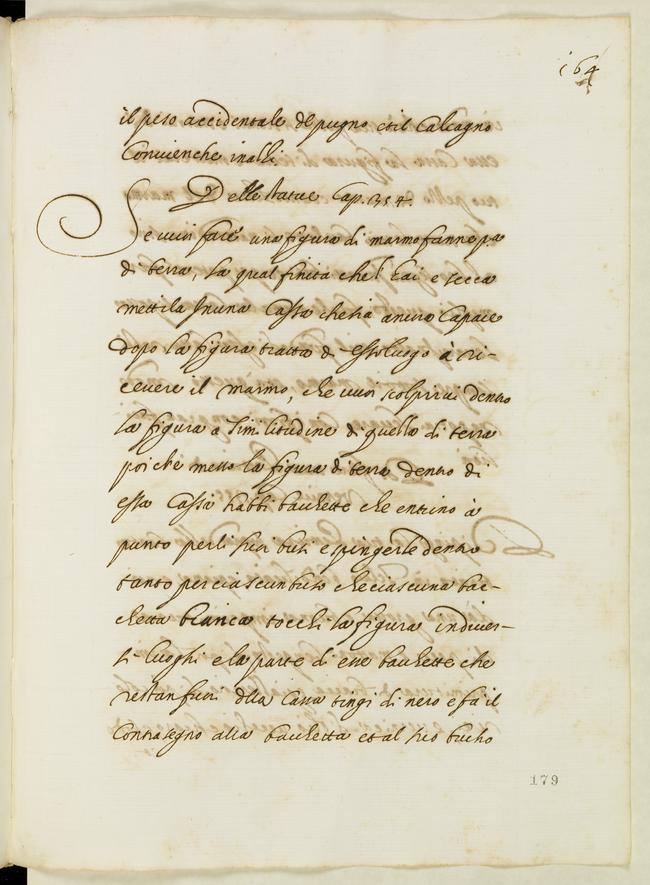 164
il peso accidentale del pugno et il Calcagno
Convien che in alzi
Delle statue Cap. 354.
Se vuoi fare una figura di marmo fanne pa
di terra, la qual finita che l'hai e secca
mettila In una Cassa che sia ancora Capace
dopo la figura tratta di esso luogo à ri-
cevere il marmo, che vuoi scolprirvi dentro
la figura a similitudine di quella di terra
poi che messo la figura di terra dentro di
essa Cassa habbi bacchette che entrino à
punto per li suoi busi e spingerle dentro
tanto per ciascun buso che ciascuna bac-
chetta bianca tocchi la figura in diver-
si luoghi e la parte di esse bacchette che
restan fuori della Cassa tingi di nero e fa il
Contrasegno alla bacchetta et al suo bucho
179